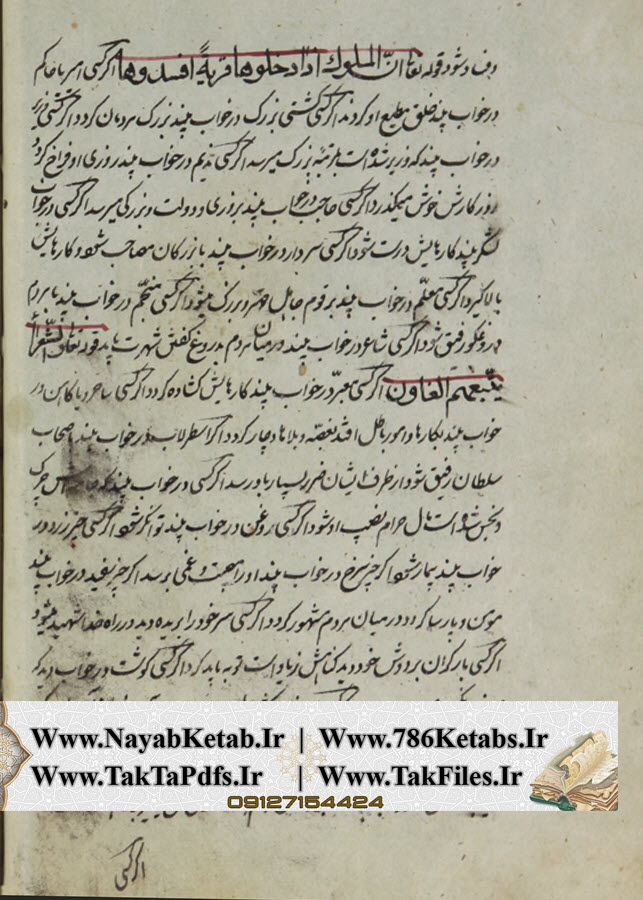 وفساد شود قوله تعا انّ الملوك اذا دخلوها قریةً افسدوها اگر کسی امیر یا حاکم
در خواب بیند خلق مطیع او کردند اگر کسی کشتی بزرک در خواب بیند بزرک مردمان کردد اگر کسی وزیر
در خواب بیند که وزیر شده است بمرتبه بزرک میرسد اگر کسی ندیم در خواب بیند روزی او فراخ کردد
روز کارش خوش میکذرد اگر کسی صاحب در خواب بیند بروزی و دولت و بزرکی میرسد اگر کسی در خواب
لشکر بیند کارهایش درست شود اگر کسی سردار در خواب بیند با بزرکان مصاحب شود و کارهایش
بالا گیرد اگر کسی معلّم در خواب بیند بر قوم جاهل مهتر و بزرک میشود اگر کسی منجّم در خواب بیند با مردم
دروغکو رفیق شود اگر کسی شاعر در خواب بیند در میان مردم بدروغ کفتن شهرت یابد قوله تعالی الشّعرآ
یتّبعهم الغاون اگر کسی معبّر در خواب بیند کارهایش کشاده کردد اگر کسی ساحر و یا کاهن در
خواب بیند بکارها و امور باطل افتد بغصّه و بلاها دچار کردد اگر اسطرلاب در خواب بیند باصحاب
سلطان رفیق شود از طرف ایشان ضرر بسیار باو رسد اگر کسی در خواب بیند که جامه‌اش چرک
و نجس شده است مال حرام نصیب او شود اگر کسی روغن در خواب بیند توانکر شود اگر کسی چیز زرد در
خواب بیند بیمار شود اگر چیز سرخ در خواب بیند او را هیبت و غمی برسد اگر چیز سفید در خواب بیند
مومن و پارسا کردد در میان مردم مشهور کردد اگر کسی سر خود را بریده دید در راه خدا شهید میشود
اگر کسی بار کران بر دوش خود دید کناهش زیاد است توبه باید کرد اگر کسی کوشت در خواب دید که
Www.NayabKetab.Ir | Www.786Ketabs.Ir
Www.TakTaPdfs.Ir | Www.TakFiles.Ir
09127154424
اگر کسی